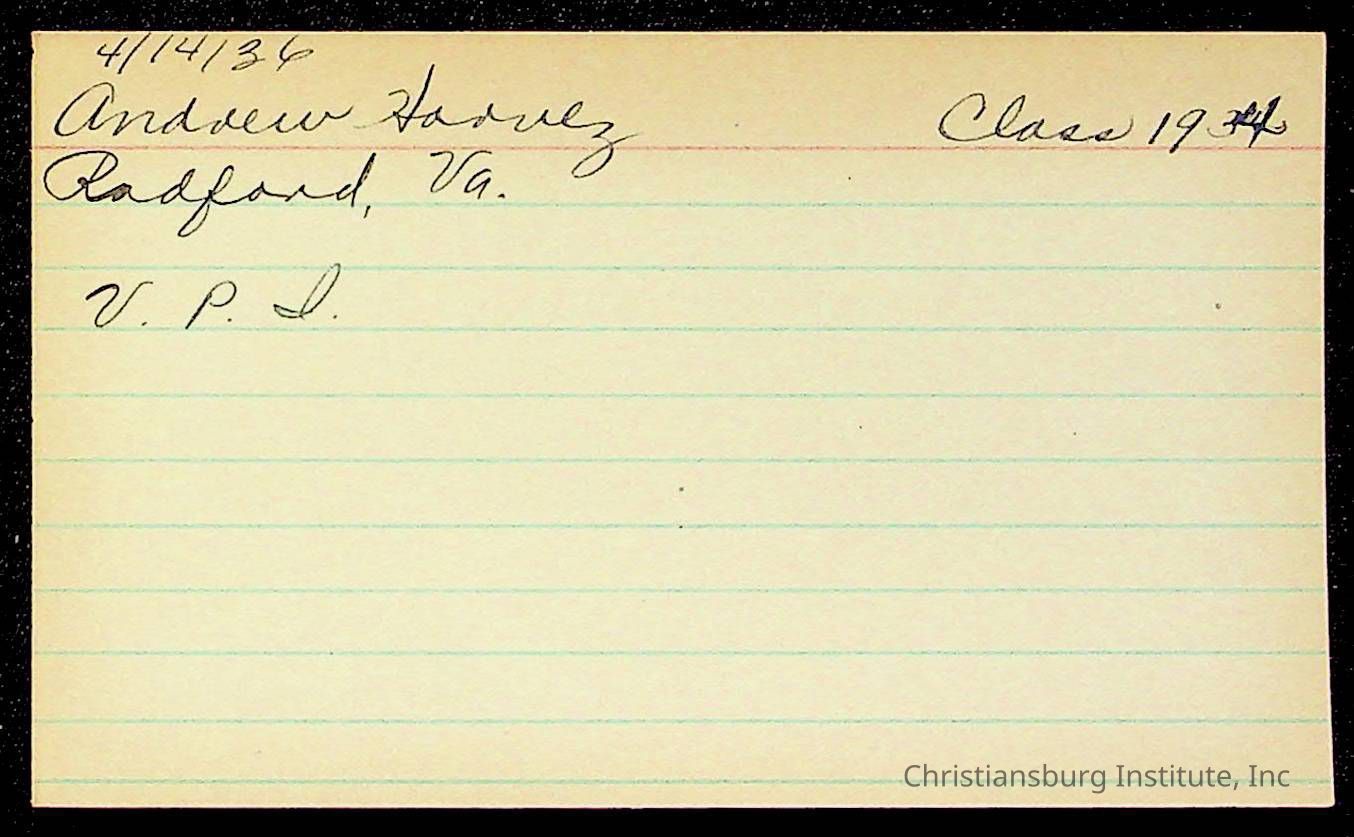 4/14/36
Andrew Harvey Class 1934
Radford, Va.
V. P. I.
Christiansburg Institute, Inc